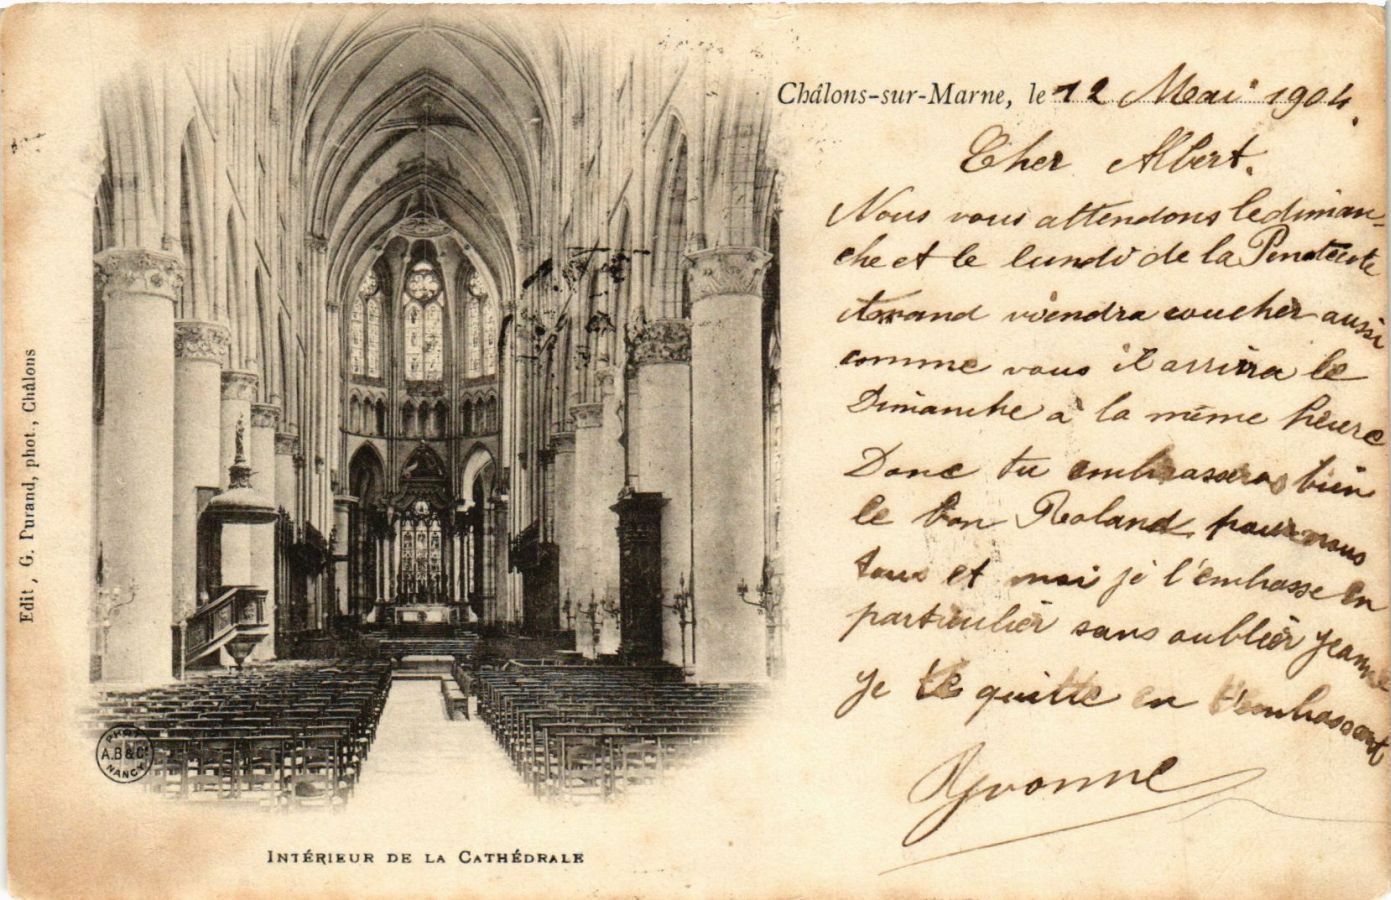 Châlons-sur-Marne, le 12 Mai 1904.
Cher Albert.
Nous vous attendons le diman-
che et le lundi de la Pentecote
viendra coucher aussi
comme vous il arrivra le
Dimanche à la même heure
Donc tu embrasseras bien
le bon Roland pour nous
tous et moi je l'embrasse en
particulier sans oublier Jeanne
Je te quitte en t'embrassant
Yvonne
Edit, G. Durand, phot., Châlons
PHOT
A.B & Cie
NANCY
INTÉRIEUR DE LA CATHÉDRALE